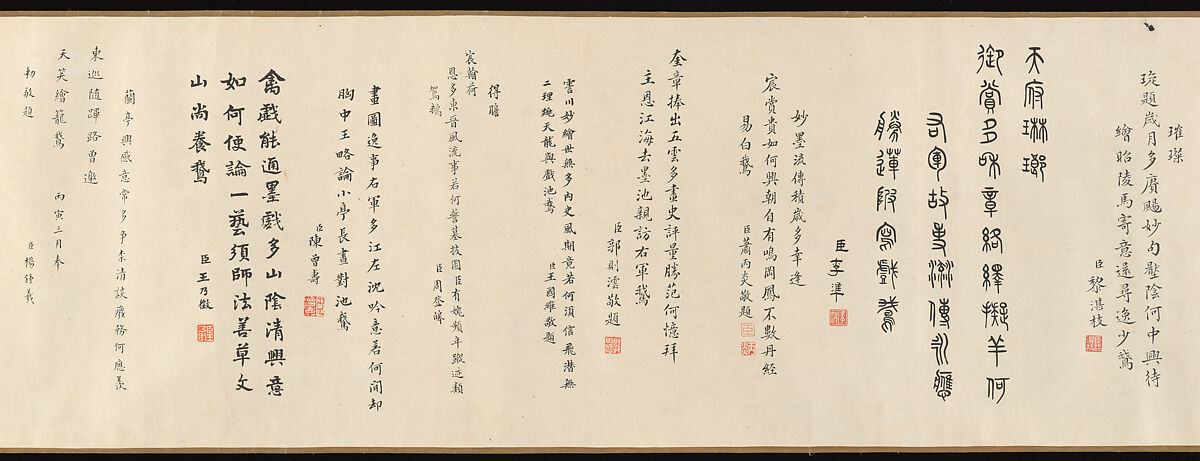 璀璨
琁題歲月多賡颺妙句壑陰何中興待
繪昭陵馬寄意還尋逸少鵞
臣黎湛枝
天府琳瑯
御賞多 章絡繹擬羊何
右軍故事流傳永應
勝蓮 寫戲鵞
臣李準
妙墨流傳積歲多幸逢
宸賞貴如何興朝自有鳴岡鳳不數丹經
易白鵞
臣蕭丙炎敬題
奎章捧出五雲多畫史評量勝范何憶拜
主恩江海去墨池親訪右軍鵞
臣郭則澐敬題
霅川妙繪世無多內史風期竟若何須信飛潛無
二理 天龍與戲池鵞
臣王國維敬題
得瞻
宸翰荷
恩多東晉風流事若何誓墓 園臣有媿頻年蹤迹類
駕鵝
臣周登皞
畫圖逸事右軍多江左沈吟意若何閒却
胸中王略論小亭長晝對池鵞
臣陳曾壽
禽戲能通墨戲多山陰清興意
如何便論一藝須師法善草文
山尚養鵞
臣王乃徵
蘭亭興感意常多爭奈清談廢務何應羨
東巡隨蹕路曾邀
天笑繪龍鵞
丙寅三月奉
敕敬題
臣楊鍾羲